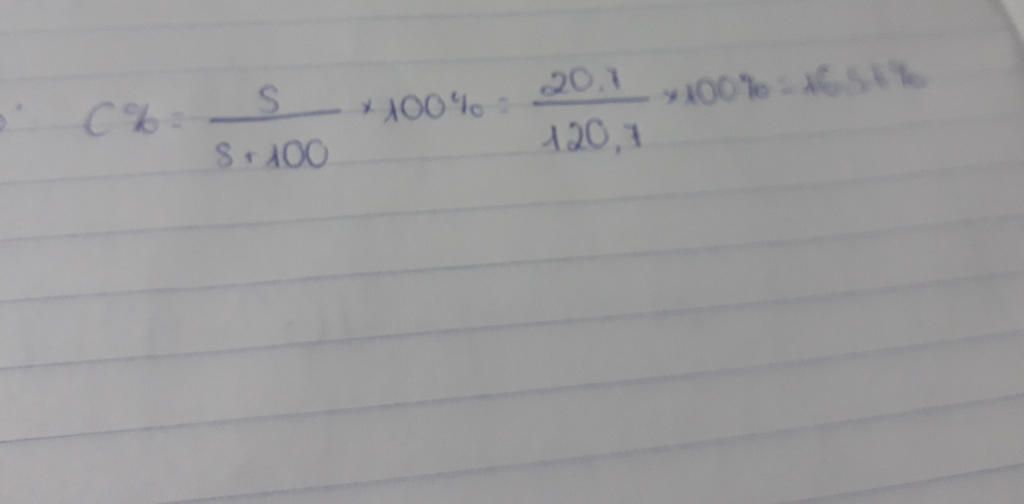 C% = S / S + 100 * 100% = 20.7 / 120,7 * 100% =